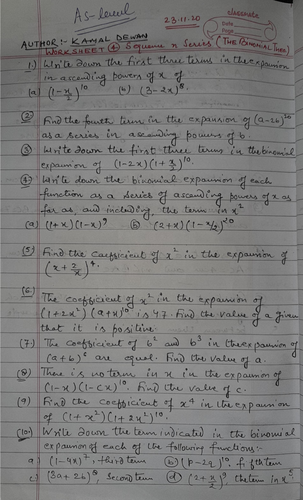 As-level
23·11·20
classmate
Date
Page
AUTHOR:- KAMAL DEWAN
WORKSHEET (4) Sequence n Series (THE BINOMIAL THEO
(1) Write down the first three terms in the expansion
in ascending powers of x of
(a) (1-x/2)^10 (b) (3-2x)^8
(2) Find the fourth term in the expansion of (a-2b)^20
as a series in ascending powers of b.
(3) Write down the first three terms in the binomial
expansion of (1-2x)(1+x/2)^10.
(4) Write down the binomial expansion of each
function as a series of ascending powers of x as
far as, and including, the term in x^2
(a) (1+x)(1-x)^9 (b) (2+x)(1-x/2)^20
(5) Find the coefficient of x^2 in the expansion of
(x+2/x)^4.
(6) The coefficient of x^2 in the expansion of
(1+2x^2)(a+x)^10 is 47. Find the value of a given
that it is positive.
(7) The coefficient of b^2 and b^3 in the expansion of
(a+b)^6 are equal. Find the value of a.
(8) There is no term in x in the expansion of
(1-x)(1-cx)^10. Find the value of c.
(9) Find the coefficient of x^4 in the expansion
of (1+x^2)(1+2x^2)^10.
(10) Write down the term indicated in the binomial
expansion of each of the following functions:-
a) (1-4x)^7, third term (b) (p-2q)^10, fifth term
c) (3a+2b)^8 second term (d) (2+x/2)^9 the term in x^5